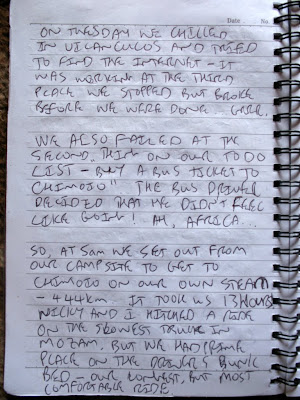 Date No.
ON TUESDAY WE CHILLED
IN VILANCULOS AND TRIED
TO FIND THE INTERNET - IT
WAS WORKING AT THE THIRD
PLACE WE STOPPED BUT BROKE
BEFORE WE WERE DONE. GRRR.
WE ALSO FAILED AT THE
SECOND THING ON OUR TO DO
LIST - BUY A BUS TICKET TO
CHIMOIO" THE BUS DRIVER
DECIDED THAT HE DIDN'T FEEL
LIKE GOING! AH, AFRICA...
SO, AT 5am WE SET OUT FROM
OUR CAMPSITE TO GET TO
CHIMOIO ON OUR OWN STEAM
- 444km. IT TOOK US 13 HOURS
NICKY AND I HITCHED A RIDE
ON THE SLOWEST TRUCK IN
MOZAM. BUT WE HAD PRIME
PLACE ON THE DRIVER'S BUNK
BED - OUR LONGEST, BUT MOST
COMFORTABLE RIDE.